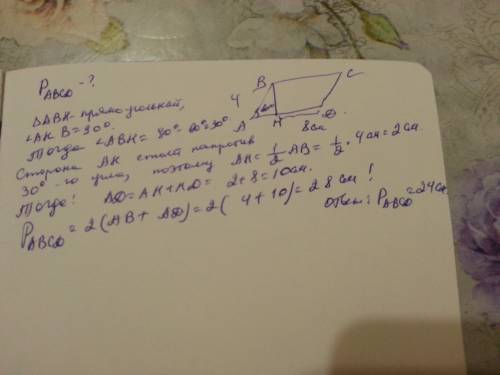 P ABCD - ?
B
C
4
60°
A
H
D
8см
△ABH - прямоугольный,
∠AHB = 90°.
Тогда ∠ABH = 90° - 60° = 30°
Сторона AH стоит напротив
30°-го угла, поэтому AH = 1/2 AB = 1/2 · 4см = 2см.
Тогда: AD = AH + HD = 2 + 8 = 10см.
P ABCD = 2(AB + AD) = 2(4 + 10) = 28 см!
Ответ: P ABCD = 24см